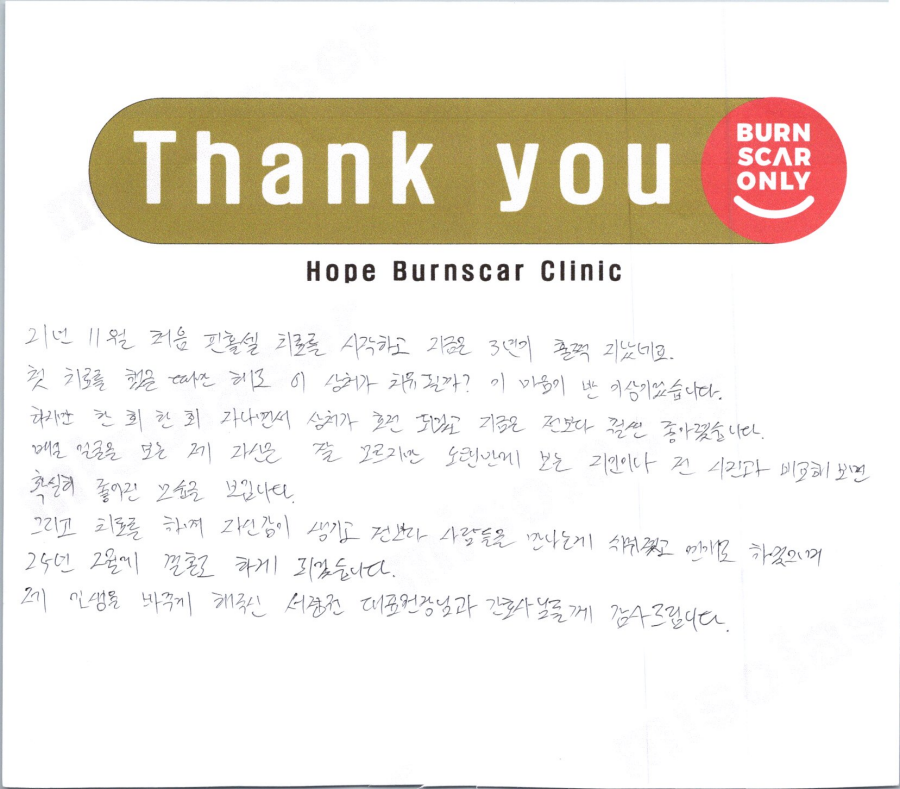 Thank you
BURN
SCAR
ONLY
Hope Burnscar Clinic
21년 11월 처음 핀홀셀 치료를 시작하고 지금은 3년이 훌쩍 지났네요.
첫 치료를 했을 때만 해도 이 상처가 치유될까? 이 마음이 반 이상이었습니다.
하지만 한 회 한 회 지나면서 상처가 호전 되었고 지금은 전보다 훨씬 좋아졌습니다.
매일 얼굴을 보는 제 자신은 잘 모르지만 오랜만에 보는 지인이나 전 사진과 비교해보면
확실히 좋아진 모습을 보입니다.
그리고 치료를 하며 자신감이 생기고 전보다 사람들을 만나는게 쉬워졌고 연애도 하였으며
25년 2월에 결혼도 하게 되었습니다.
제 인생을 바꾸게 해주신 대표원장님과 간호사님들께 감사드립니다.